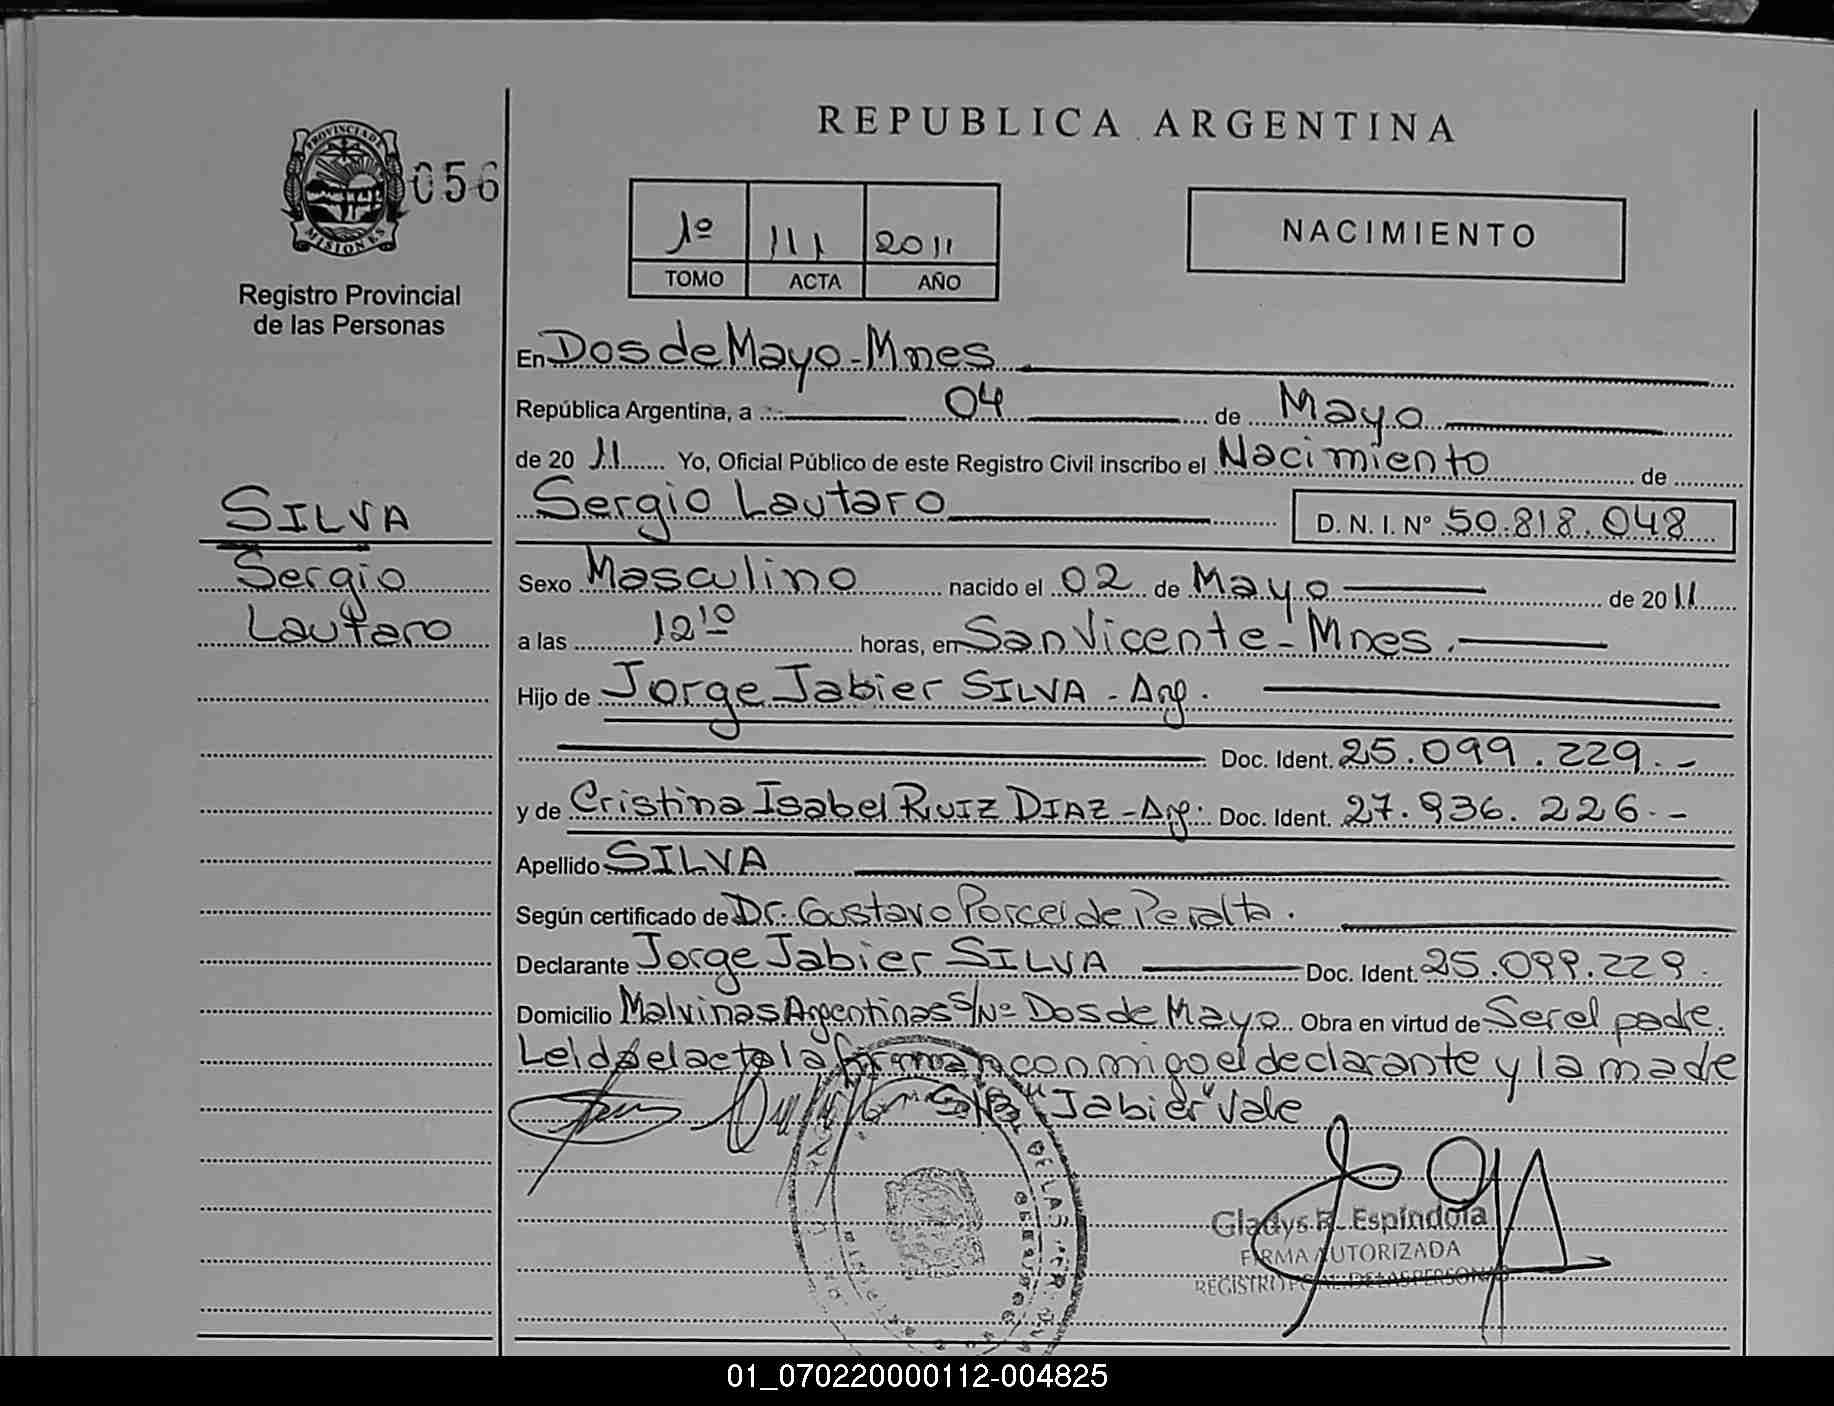 REPUBLICA ARGENTINA
PROVINCIA DE
MISIONES
056
Registro Provincial
de las Personas
1º 111 2011
TOMO ACTA AÑO
NACIMIENTO
En Dos de Mayo - Mnes
República Argentina, a 04 de Mayo
de 20 11 Yo, Oficial Público de este Registro Civil inscribo el Nacimiento de
Sergio Lautaro D. N. I. Nº 50.818.048
SILVA
Sergio
Lautaro
Sexo Masculino nacido el 02 de Mayo de 20 11
a las 12 10 horas, en San Vicente - Mnes.
Hijo de Jorge Jabier SILVA - Arg.
Doc. Ident. 25.099.229.-
y de Cristina Isabel RUIZ DIAZ - Arg. Doc. Ident. 27.936.226.-
Apellido SILVA
Según certificado de Dr. Gustavo Porcel de Peralta.
Declarante Jorge Jabier SILVA Doc. Ident. 25.099.229.
Domicilio Malvinas Argentinas S/Nº Dos de Mayo. Obra en virtud de Ser el padre.
Leída el acta la firman conmigo el declarante y la madre
"Jabier" Vale
DE LAS
Gladys R. Espíndola
FIRMA AUTORIZADA
REGISTRO PCIAL. DE LAS PERSONAS
01_070220000112-004825